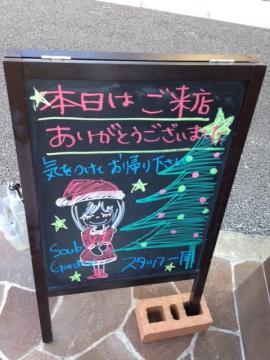 本日は ご来店
ありがとうございます
気をつけて お帰り下さい
スタッフ一同